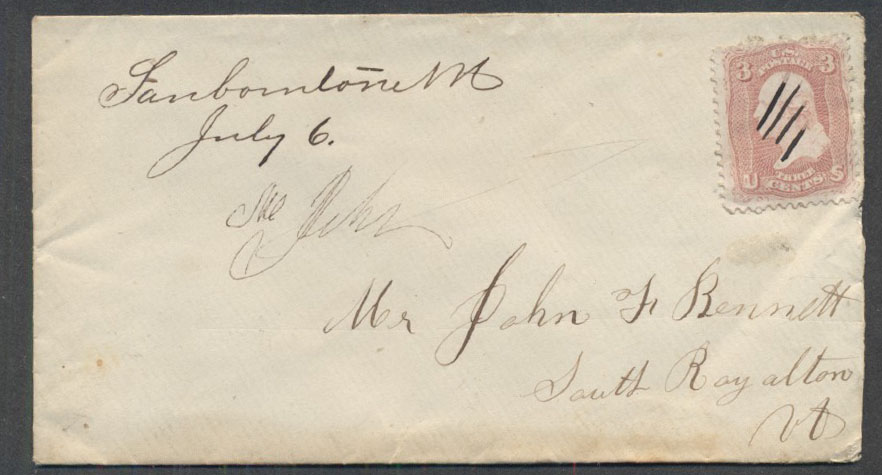 Sanbornton NH
July 6.
3 U.S. 3
POSTAGE
U THREE S
CENTS
John
Mr John F Bennett
South Royalton
Vt